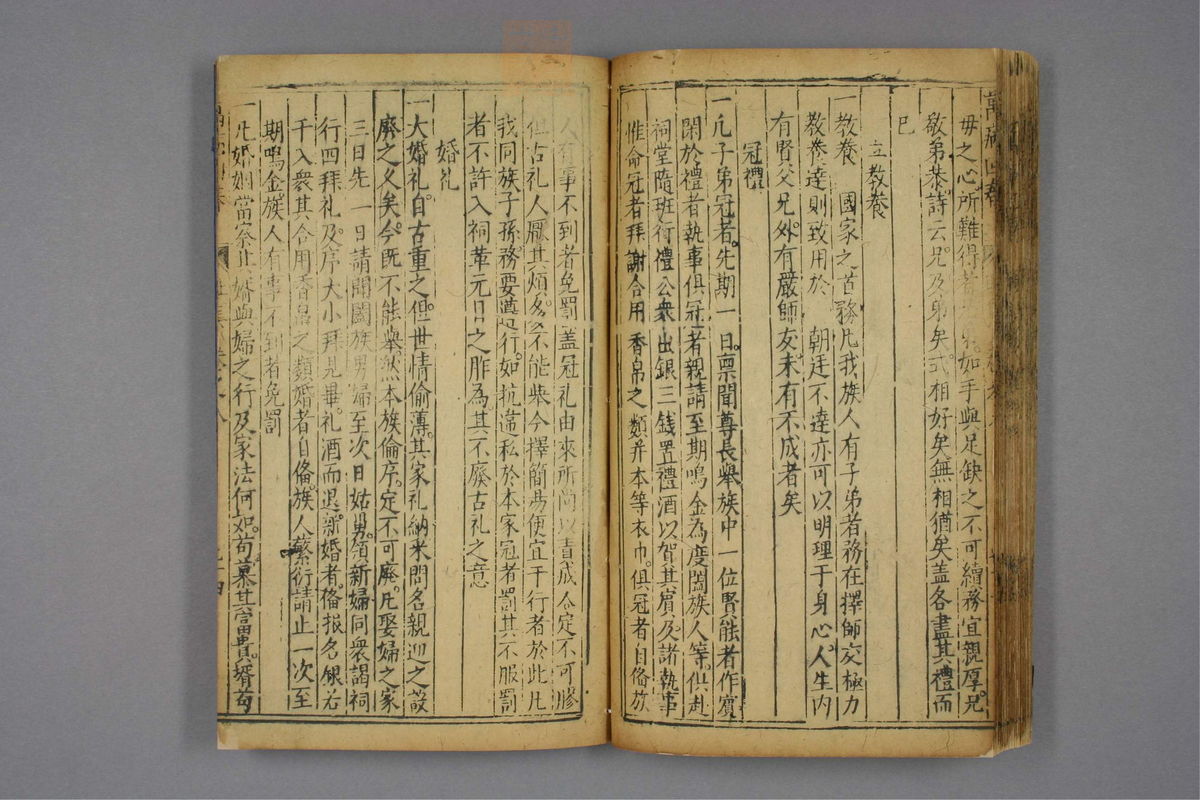 毋之心所難得者如手與足缺之不可續務宜親厚兄
敬弟恭詩云兄及弟矣式相好矣無相猶矣蓋各盡其禮而
已
立教養
一教養 國家之首務凡我族人有子弟者務在擇師交極力
教養達則致用於 朝廷不達亦可以明理于身心人生内
有賢父兄外有嚴師友未有不成者矣
冠禮
一凡子弟冠者先期一日稟聞尊長舉族中一位賢能者作賓
閑於禮者執事俱冠者親請至期鳴金為度闔族人等俱赴
祠堂隨班行禮公衆出銀三錢置禮酒以賀其賓及諸執事
惟命冠者拜謝合用香帛之類并本等衣巾俱冠者自俻族
人有事不到者免罰盖冠礼由來所尚以責成人定不可膠
但古礼人厭其煩多不能舉今擇簡易便宜于行者於此凡
我同族子孫務要遵行如抗違私於本家冠者罰其不服罰
者不許入祠革元日之胙為其不廢古礼之意
婚礼
一大婚礼自古重之但世情偷薄其家礼納采問名親迎之設
廢之久矣今既不能舉然本族倫序定不可廢凡娶婦之家
三日先一日請閤闔族男婦至次日姑男領新婦同衆謁祠
行四拜礼及序大小拜見畢礼酒而退新婚者俻报名銀若
干入衆其合用香帛之類婚者自俻族人蕃衍請止一次至
期鳴金族人有事不到者免罰
一凡婚姻當察其婿與婦之行及家法何如苟慕其富貴婿苟